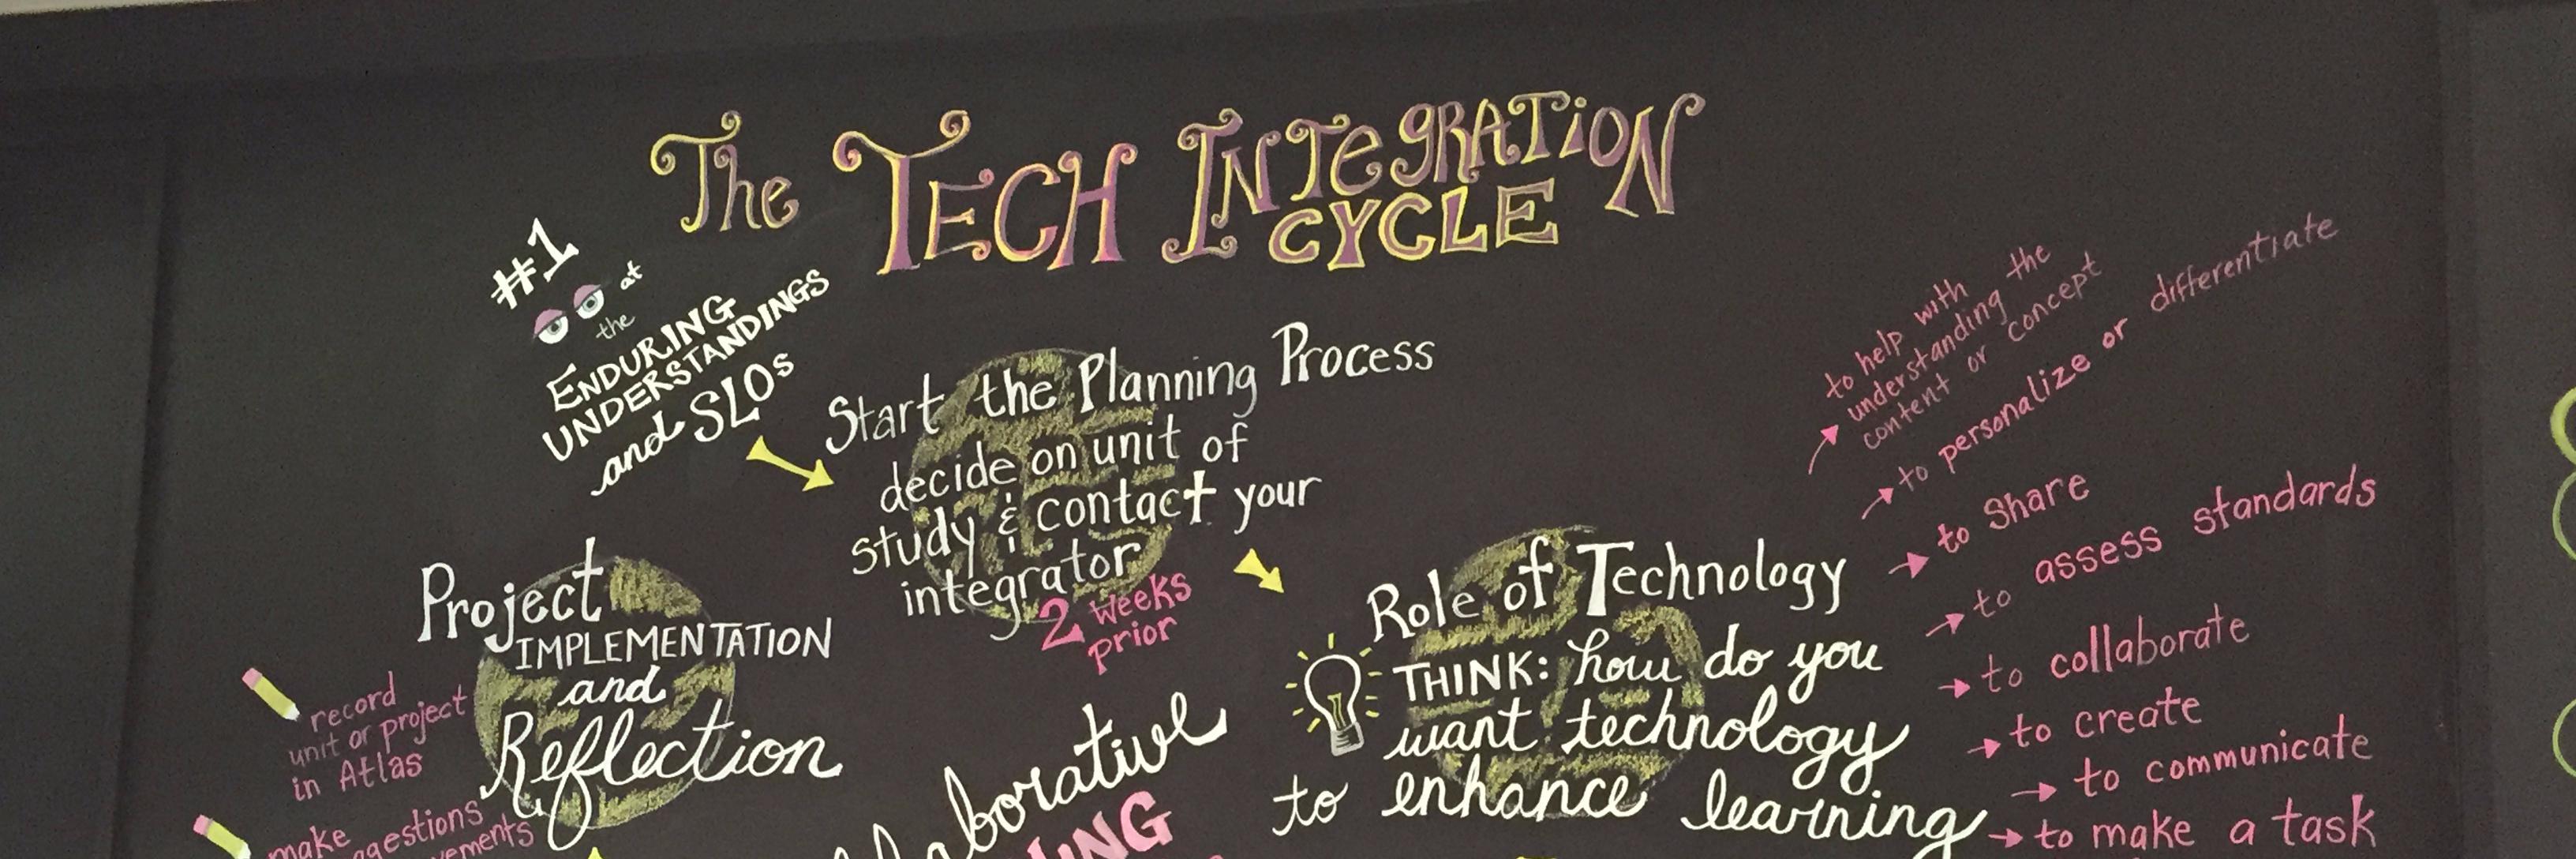 The TECH INTEGRATION
CYCLE
#1
at
the
ENDURING
UNDERSTANDINGS
and SLOs
Start the Planning Process
decide on unit of
study & contact your
integrator
2 weeks
prior
Role of Technology
THINK: how do you
want technology
to enhance learning
to help with
understanding the
content or concept
to personalize or differentiate
to share
to assess standards
to collaborate
to create
to communicate
to make a task
Project
IMPLEMENTATION
and
Reflection
record
unit or project
in Atlas
make